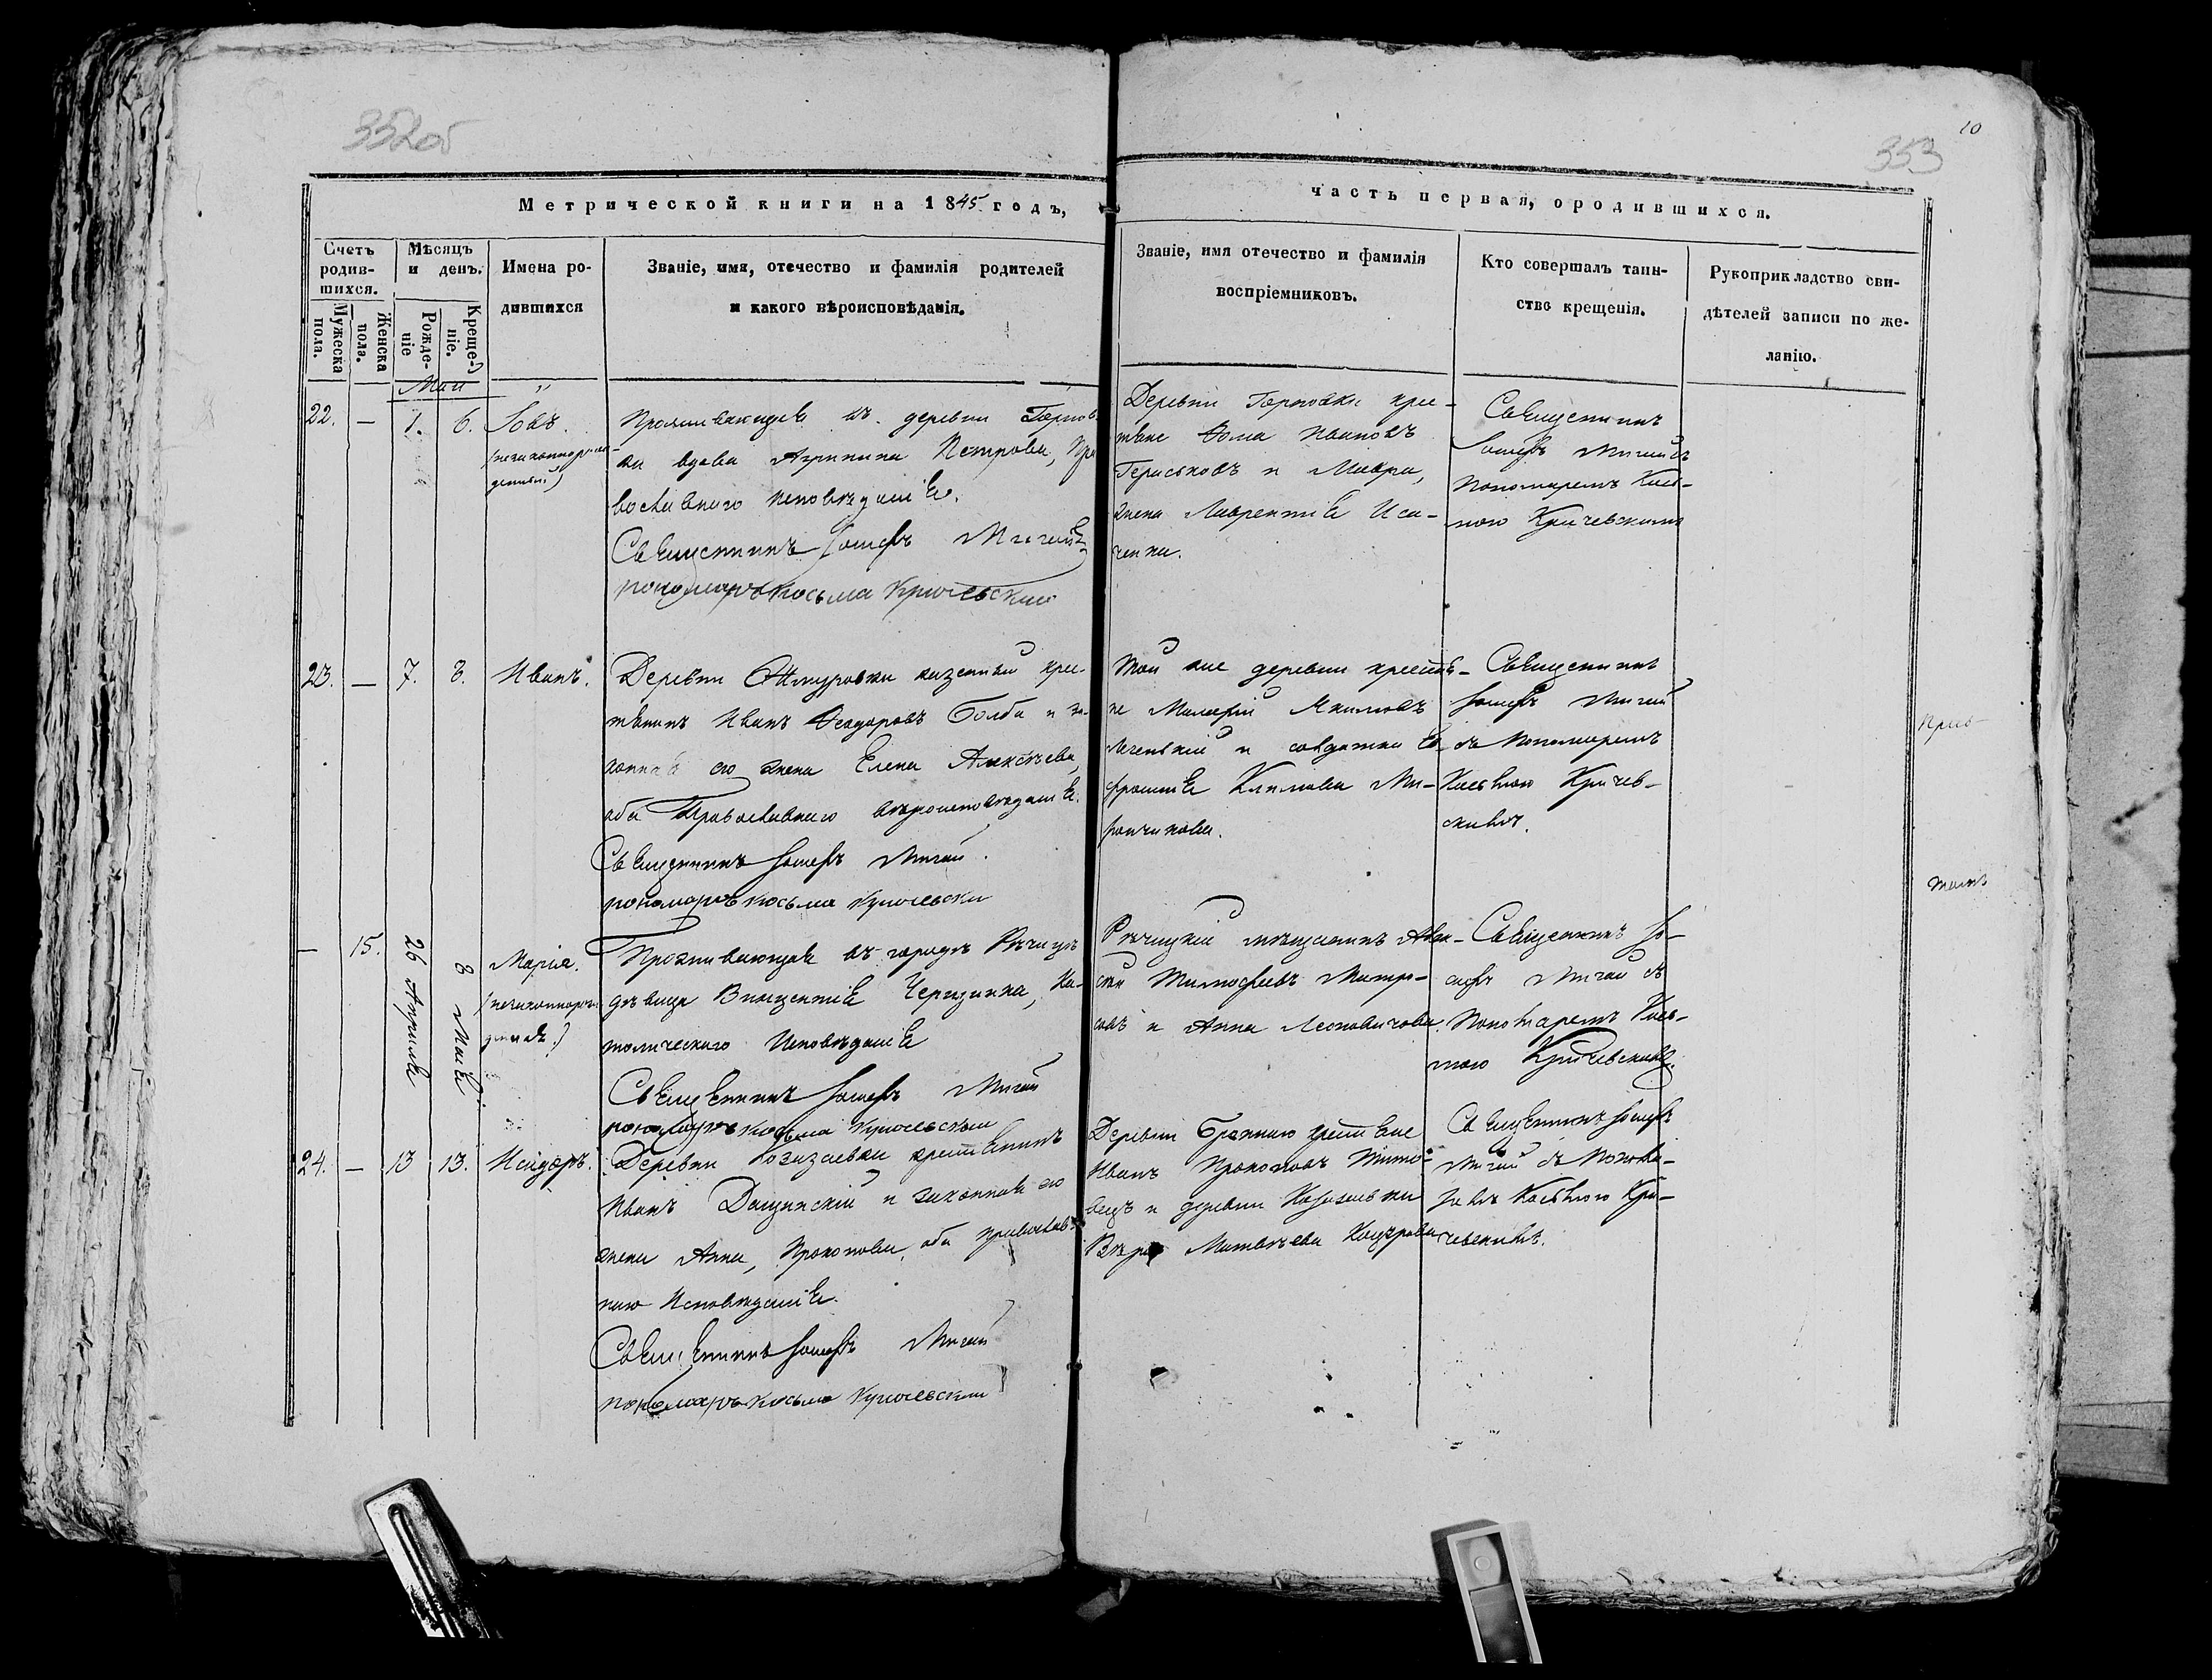 352об
10
353
Метрической книги на 1845 годъ,
часть первая, ородившихся.
Счетъ родив-шихся.
Мужеска пола.
Женска пола.
Мѣсяцъ и день.
Рожде-ніе
Креще-ніе.
Имена ро-
дившихся
Званіе, имя, отечество и фамилія родителей
и какого вѣроисповѣданія.
Званіе, имя отечество и фамилія
воспріемниковъ.
Кто совершалъ таин-
ство крещенія.
Рукоприкладство сви-
дѣтелей записи по же-
ланію.
Маи
22. — 1. 6. Іовъ.
Проживающая въ деревни
ки вдова Агрипина Петрова, Пра
вославнаго исповѣданія.
Священникъ Іосифъ Мигай
пономаръ Косьма Кричевскии
Деревни крес-
тьяне Фома Ивановъ
и Мавра,
жена Лаврентія Иса-
ченки.
Священникъ
Іосифъ Мигай съ
Пономаремъ Кось-
мою Кричевскимъ
23. — 7. 8. Иванъ.
Деревни казенный крес-
тянинъ Иванъ Феодоровъ Болба и за-
конная его жена Елена Алексѣева,
оба Православнаго вѣроисповѣданія.
Священникъ Іосифъ Мигай.
пономаръ косьма Кричевски
Той же деревни крестья-
не Якимовъ
и солдатка Ев
фросинія Климова Ми-
рончикова.
Священникъ
Іосифъ Мигай
съ Пономаремъ
Косьмою Кричев-
скимъ.
— 15. 26 Апрѣля 8 Маія. Марія.
Проживающая въ городѣ Рѣчицѣ
дѣвица Винцентія Ка-
толическаго Исповѣданія
Священникъ Іосифъ Мигай
пономаръ косьма Кричевскии
Рѣчицкій мѣщанинъ Алек-
сѣй Тимофеевъ Митро-
ховъ и Анна Леоновичова.
Священникъ Іо-
сифъ Мигай съ
Пономаремъ Кось-
мою Кричевскимъ.
24. — 13 13. Исидоръ.
Деревни крестьянинъ
Иванъ и законная его
жена Анна, Прокопова, оба православ-
наго Исповѣданія.
Священникъ Іосифъ Мигай
пономаръ косьма Кричевскии
Деревни
Иванъ Прокоповъ
и деревни
Вѣра Матвѣева
Священникъ Іосифъ
Мигай съ Понома-
ремъ Косьмою Кри-
чевскимъ.